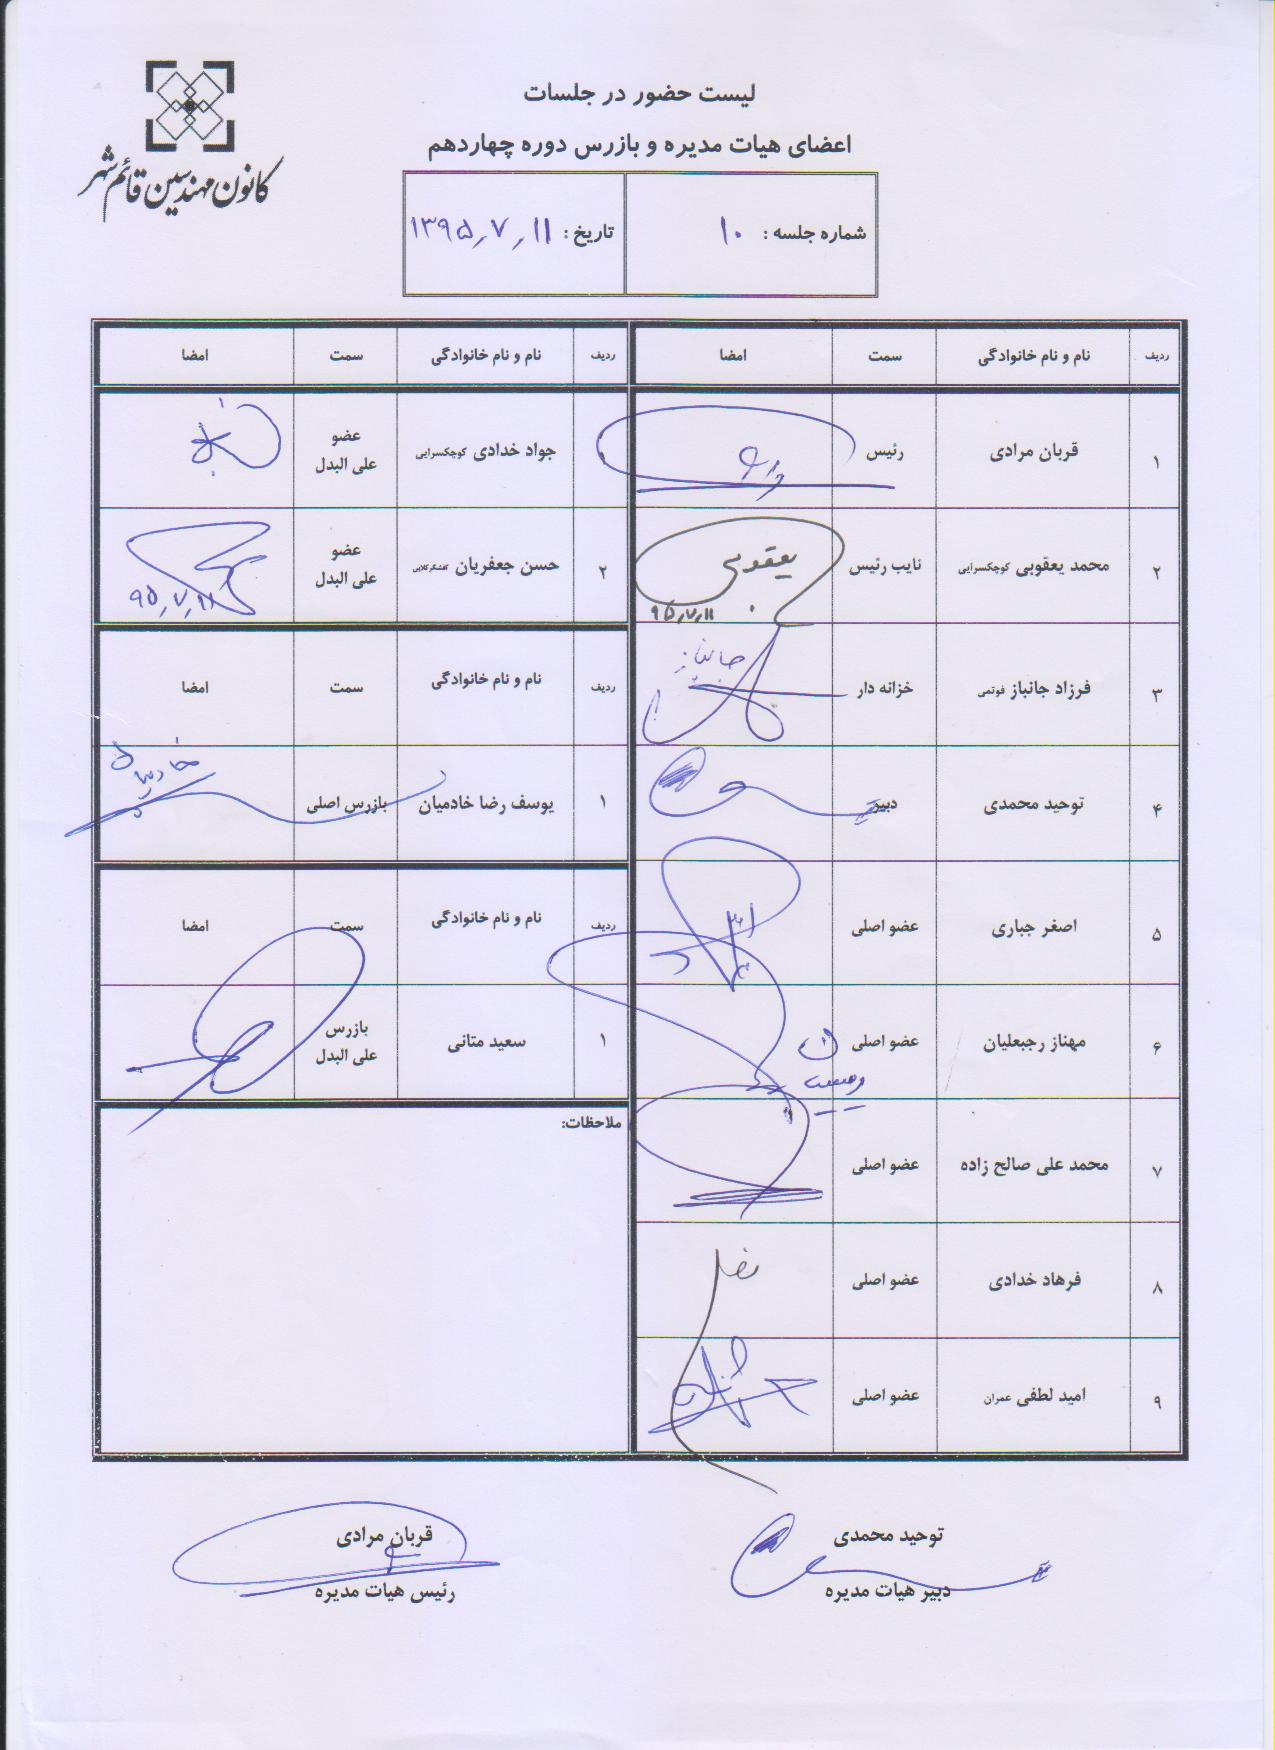 کانون مهندسین قائم شهر
لیست حضور در جلسات
اعضای هیات مدیره و بازرس دوره چهاردهم
شماره جلسه : ۱۰
تاریخ : ۱۳۹۵٫۷٫۱۱
ردیف نام و نام خانوادگی سمت امضا
۱ قربان مرادی رئیس
۲ محمد یعقوبی کوچکسرایی نایب رئیس یعقوبی
۹۵٫۷٫۱۱
۳ فرزاد جانباز فوتمی خزانه دار جانباز
۴ توحید محمدی دبیر
۵ اصغر جباری عضو اصلی
۶ مهناز رجبعلیان عضو اصلی
۷ محمد علی صالح زاده عضو اصلی
۸ فرهاد خدادی عضو اصلی
۹ امید لطفی عمران عضو اصلی
ردیف نام و نام خانوادگی سمت امضا
۱ جواد خدادی کوچکسرایی عضو
علی البدل
۲ حسن جعفریان کفشگرکلایی عضو
علی البدل
۹۵٫۷٫۱۱
ردیف نام و نام خانوادگی سمت امضا
۱ یوسف رضا خادمیان بازرس اصلی خادمیان
ردیف نام و نام خانوادگی سمت امضا
۱ سعید متانی بازرس
علی البدل
ملاحظات:
توحید محمدی
دبیر هیات مدیره
قربان مرادی
رئیس هیات مدیره